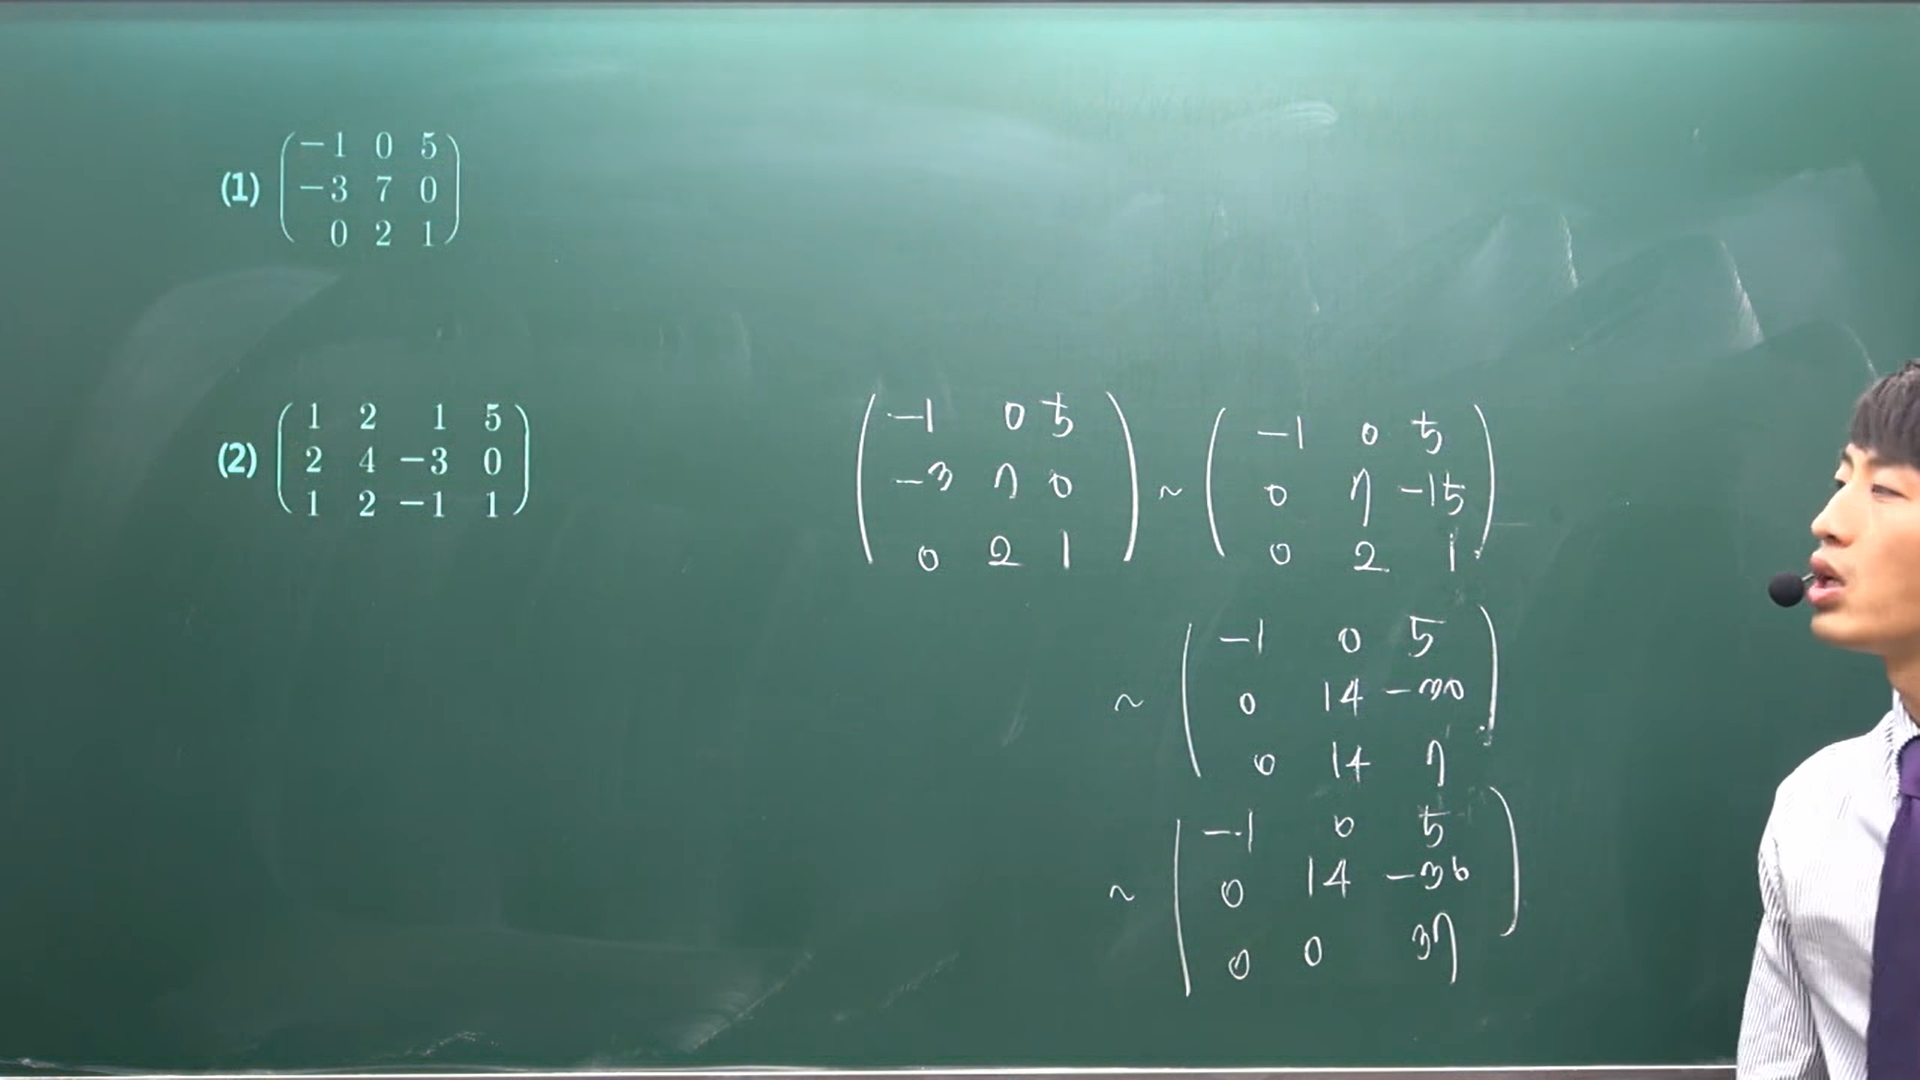 (1) −1 0 5
−3 7 0
0 2 1
(2) 1 2 1 5
2 4 −3 0
1 2 −1 1
−1 0 5
−3 7 0
0 2 1
~
−1 0 5
0 7 −15
0 2 1
~
−1 0 5
0 14 −30
0 14 7
~
−1 0 5
0 14 −30
0 0 37